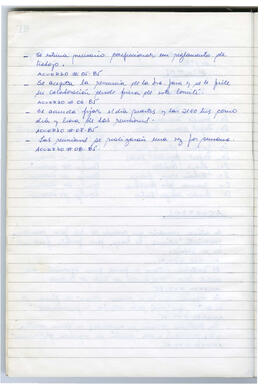 - Se estima necesario confeccionar un reglamento de
trabajo.
ACUERDO # 05-85
- Se acepta la renuncia de la Sra. y se le pide
su colaboración desde fuera de este comité.
ACUERDO # 06-85
- Se acuerda fijar el día martes y las 20:00 hrs como
día y hora de las reuniones.
ACUERDO # 07-85
- Las reuniones se realizarán una vez por semana.
ACUERDO # 08-85.